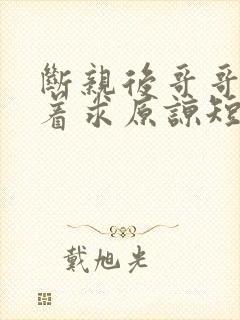 斷親後哥哥
着求原諒短
戴旭光